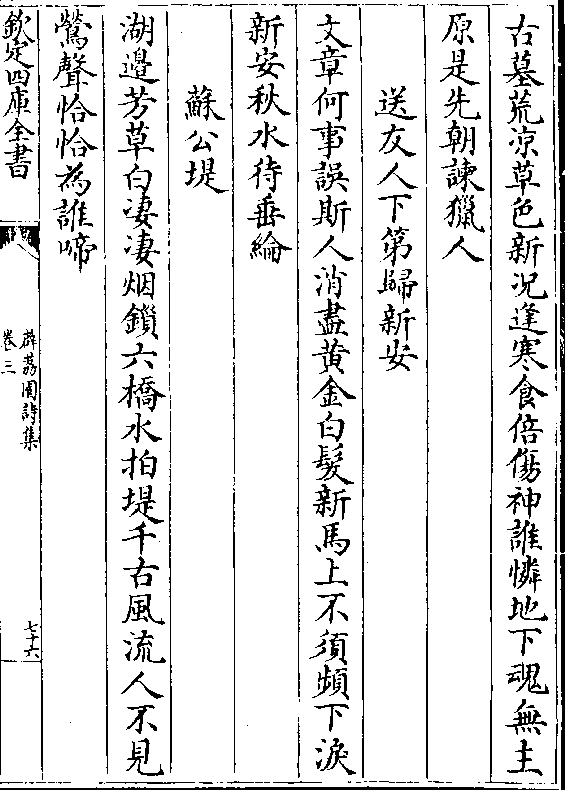 古墓荒凉草色新况逢寒食倍傷神誰憐地下魂無主
原是先朝諫獵人
送友人下第歸新安
文章何事誤斯人消盡黄金白髮新馬上不須頻下淚
新安秋水待垂綸
蘇公堤
湖邉芳草白凄凄烟鎖六橋水拍堤千古風流人不見
鶯聲恰恰為誰啼
欽定四庫全書
薜荔園詩集
卷三
七十六